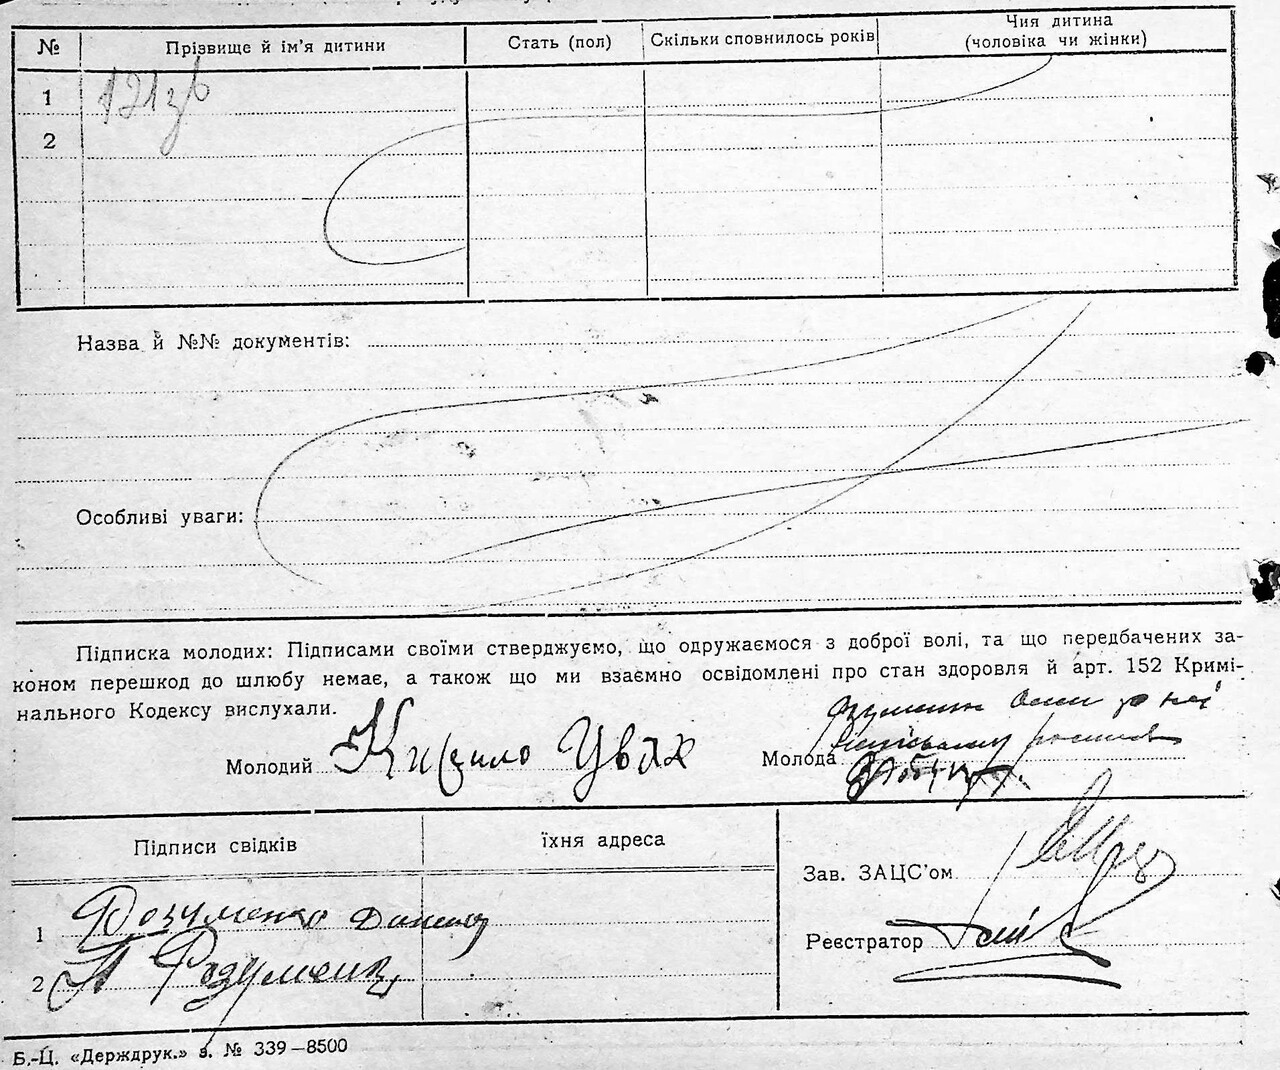 № Прізвище й ім'я дитини Стать (пол) Скільки сповнилось років Чия дитина (чоловіка чи жінки)
1
2
Назва й №№ документів:
Особливі уваги:
Підписка молодих: Підписами своїми стверджуємо, що одружаємося з доброї волі, та що передбачених за-
коном перешкод до шлюбу немає, а також що ми взаємно освідомлені про стан здоровля й арт. 152 Кримі-
нального Кодексу вислухали.
Молодий Кирило Увах Молода
Підписи свідків їхня адреса
Зав. ЗАЦС'ом
1 Розуменко
Реєстратор
2 Розуменко
Б.-Ц. «Держдрук.» з. № 339—8500